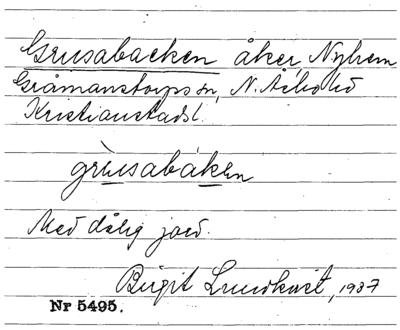 Grusabacken åker, Nyhem
Gråmanstorps sn, N. Åsbo hd
Kristianstads l.
grùsabàken
Med dålig jord.
Birgit Lundkvist, 1937
Nr 5495.